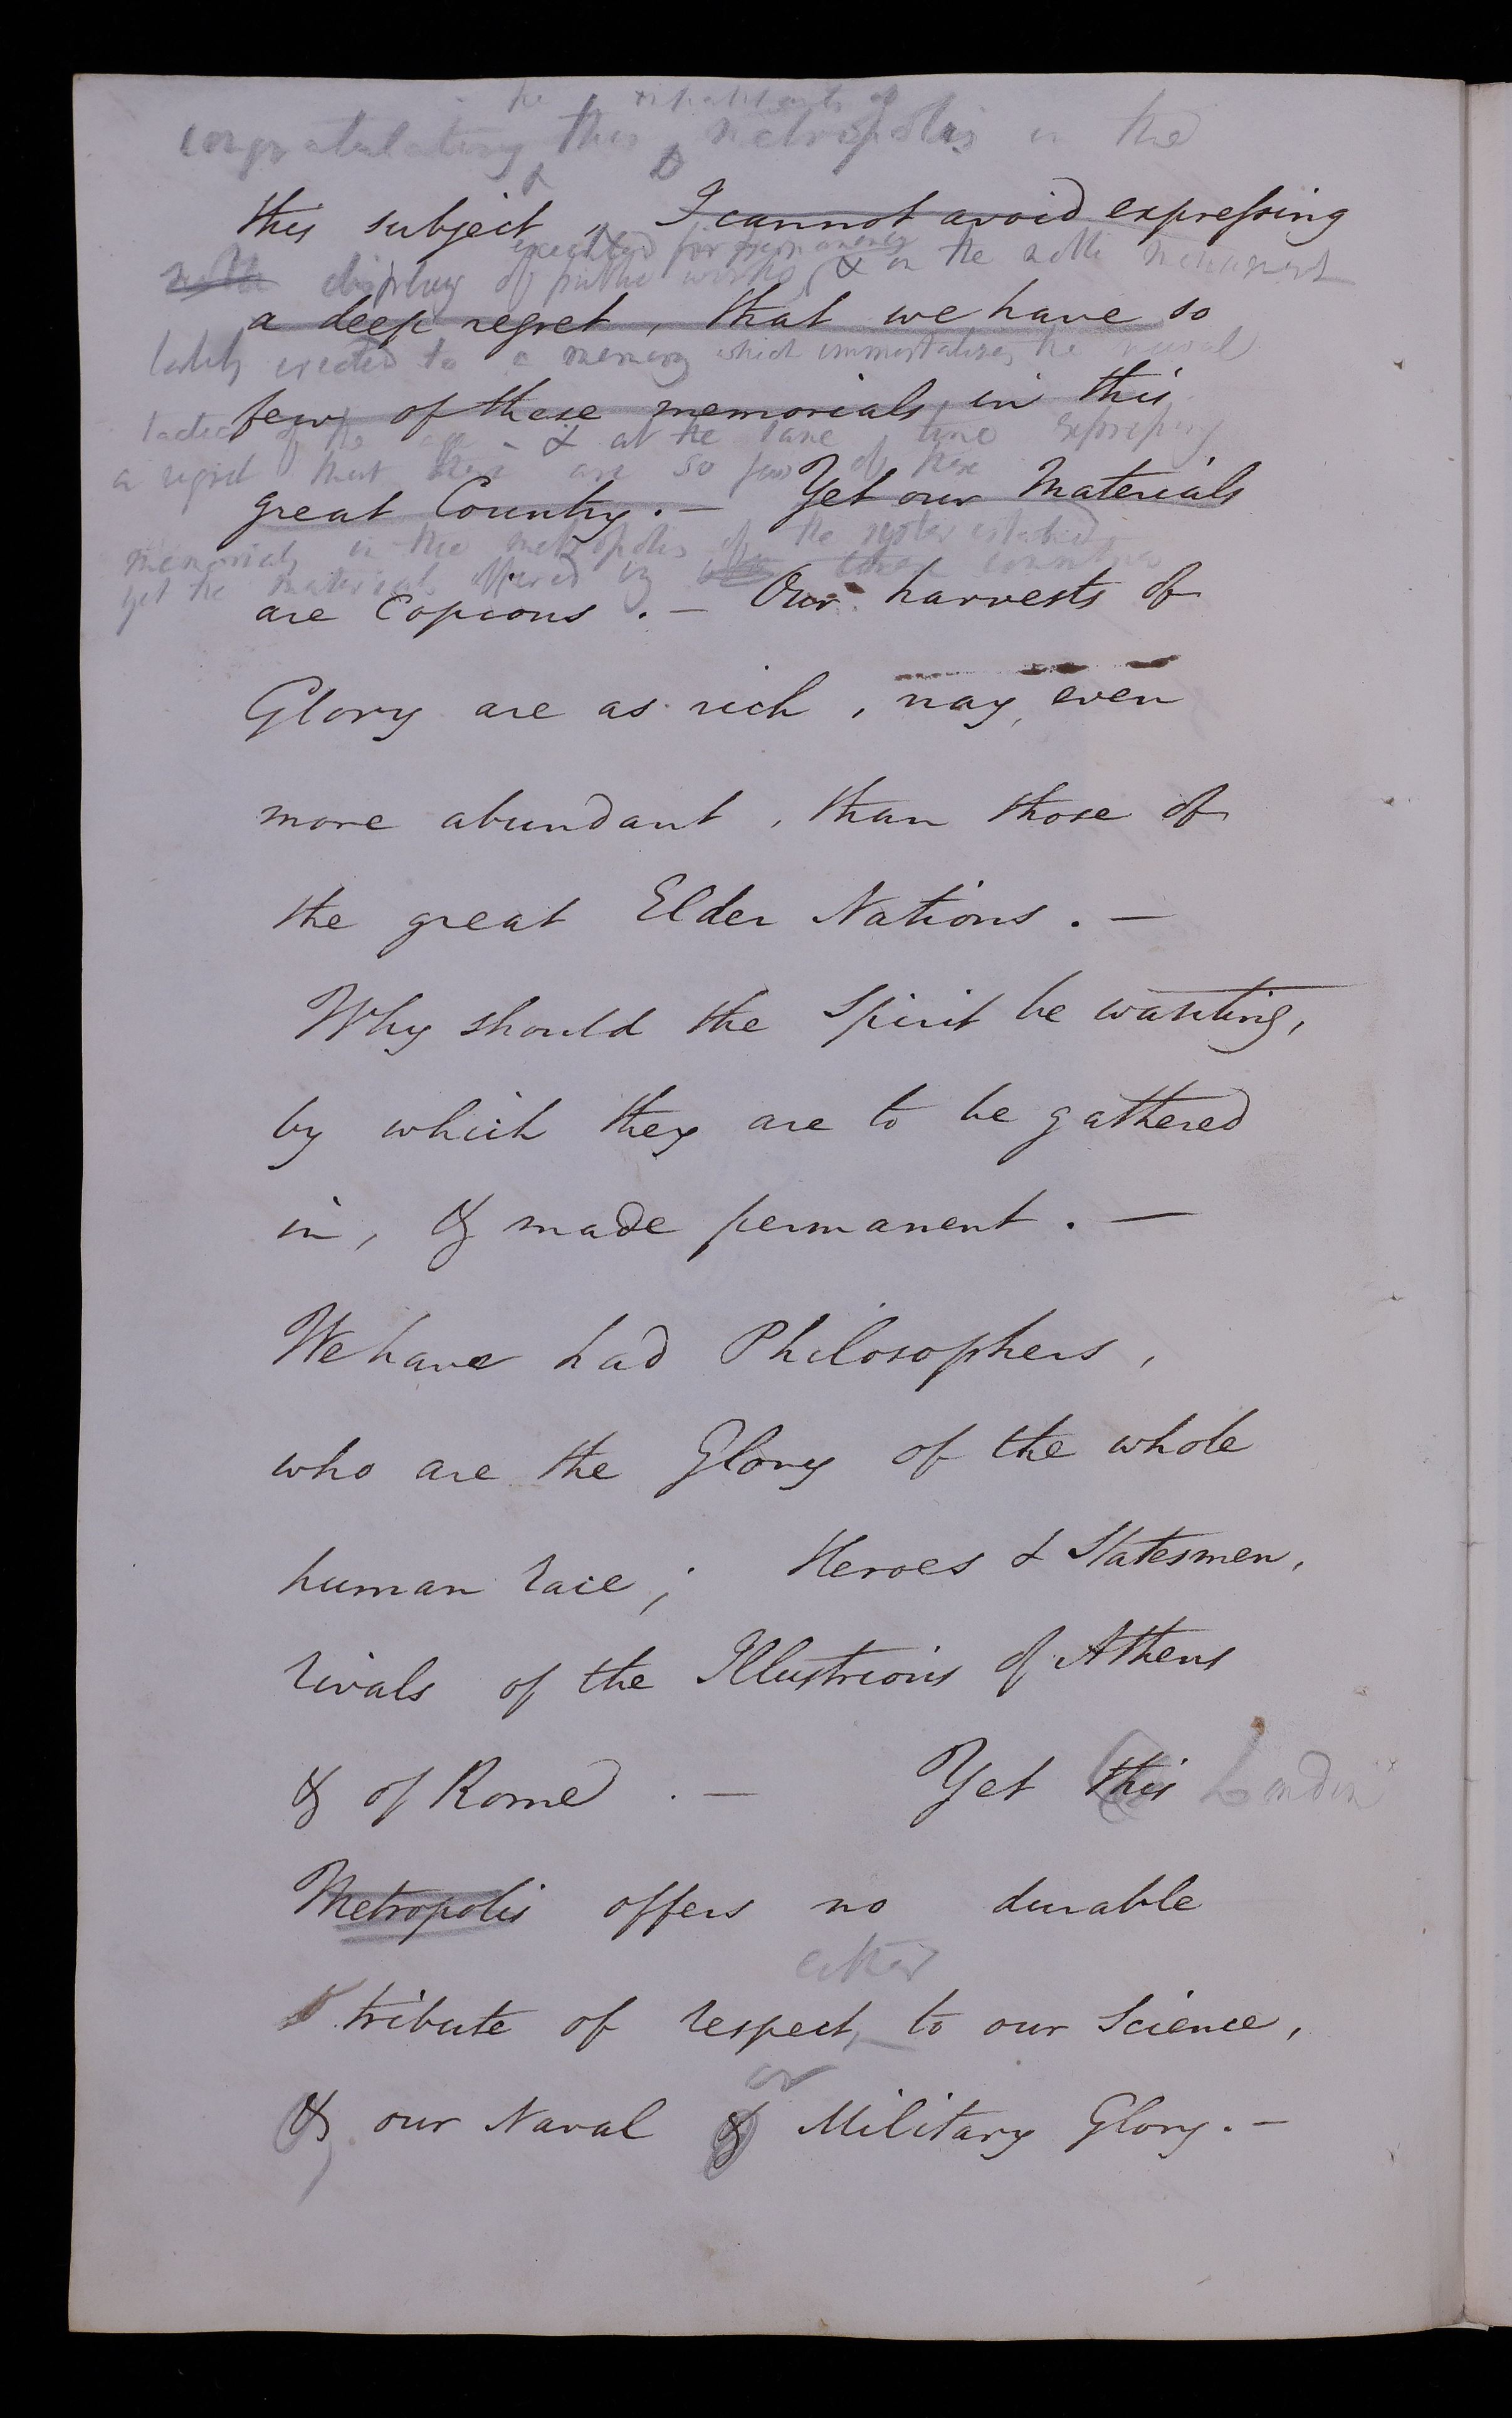 the inhabitants of
congratulating this metropolis in the
this subject, I cannot avoid expressing
executed for
noble display of public works & on the noble monument
a deep regret, that we have so
lately erected to a memory which immortalises the naval
few of these memorials, in this
tactics of the age - & at the same time expressing
a regret that there are so few of these
great Country. — Yet our Materials
memorials in the metropolis of the sister island
yet the materials offered by these countries
are Copious. — Our harvests of
Glory are as rich, nay, even
more abundant, than those of
the great Elder Nations. —
Why should the Spirit be wanting,
by which they are to be gathered
in, & made permanent. —
We have had Philosophers,
who are the Glory of the whole
human race; Heroes & Statesmen,
rivals of the Illustrious of Athens
& of Rome. — Yet this London
Metropolis offers no durable
either
tribute of respect, to our Science,
or
& our Naval & Military Glory. —